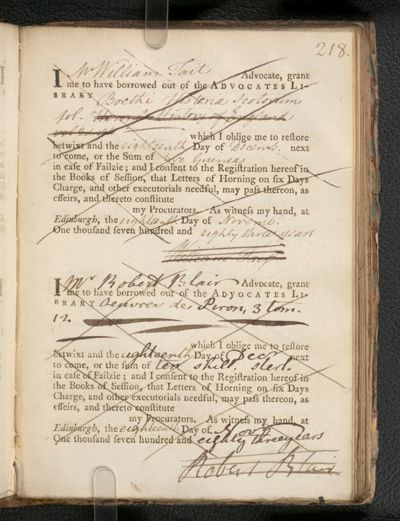 218.
I Mr William Tait Advocate, grant
me to have borrowed out of the ADVOCATES LI-
BRARY Boethi Historia Scotorum
fol.
which I oblige me to reſtore
betwixt and the eighteenth Day of Decemb. next
to come, or the Sum of Guineas
in caſe of Failzie; and I conſent to the Regiſtration hereof in
the Books of Seſſion, that Letters of Horning on ſix Days
Charge, and other executorials needful, may paſs thereon, as
effeirs, and thereto conſtitute
my Procurators. As witneſs my hand, at
Edinburgh, the eighteenth Day of Novemr.
One thouſand ſeven hundred and eighty three years
William Tait
I Mr Robert Blair Advocate, grant
me to have borrowed out of the ADVOCATES LI-
BRARY Oeuvres de Piron, 3 tom.
12.
which I oblige me to reſtore
betwixt and the eighteenth Day of Decr. next
to come, or the ſum of ten shill. sterl.
in caſe of Failzie; and I conſent to the Regiſtration hereof in
the Books of Seſſion, that Letters of Horning on ſix Days
Charge, and other executorials needful, may paſs thereon, as
effeirs, and thereto conſtitute
my Procurators. As witneſs my hand, at
Edinburgh, the eighteenth Day of Novr.
One thouſand ſeven hundred and eighty three years
Robert Blair